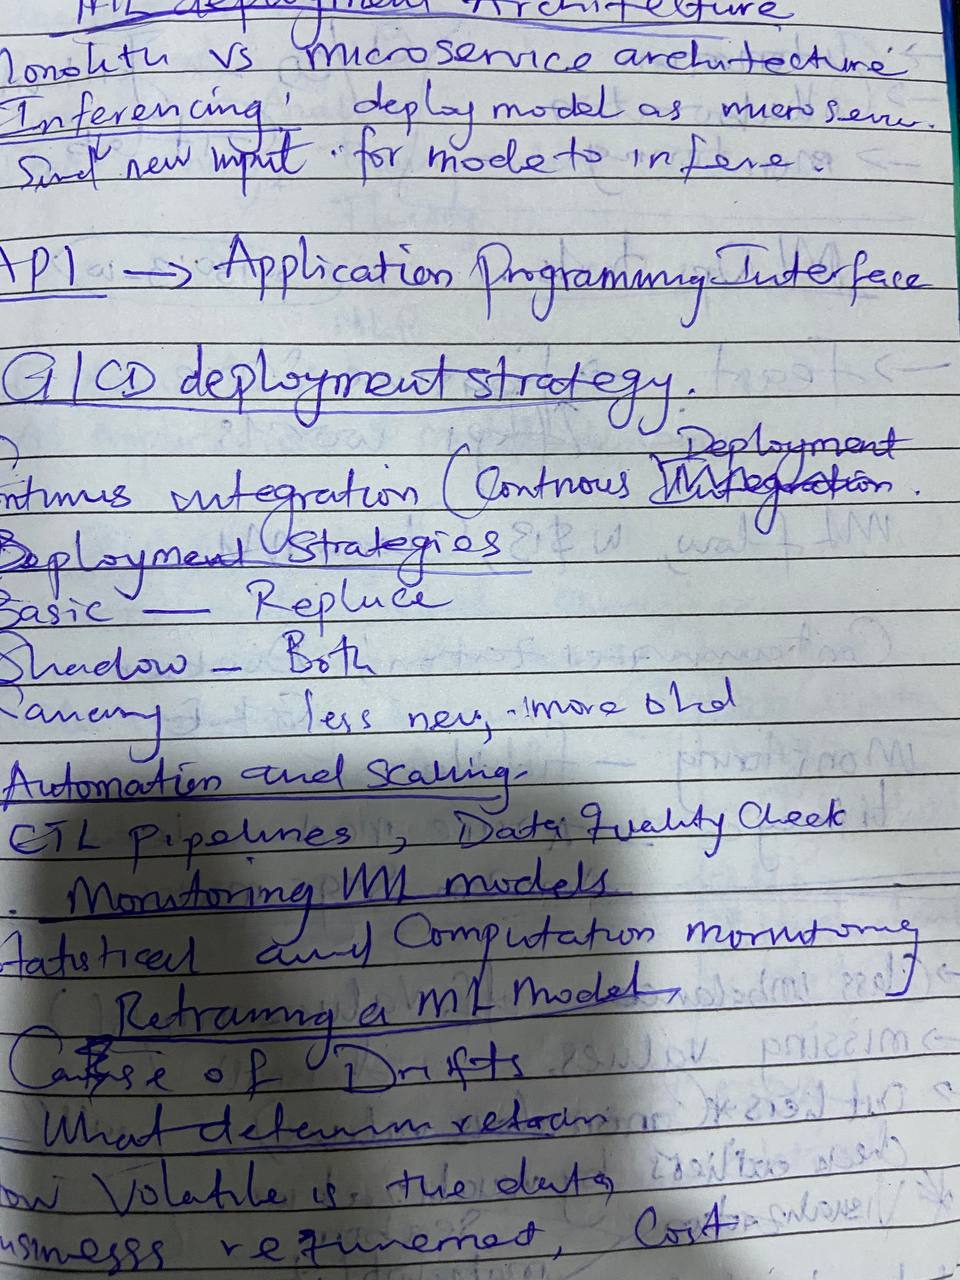 ML deployment Architecture
Monolith vs microservice architecture
Inferencing: deploy model as microserv.
Send new input for mode to infere.
API → Application Programming Interface
CI/CD deployment strategy.
Deployment
ntinus integration (Continous Integration.
Deployment Strategies
Basic — Repluce
Shadow — Both
Canary less new, more old
Automation and scaling
ETL pipelines, Data Quality Check
Monitoring ML models
Statistical and Computation monitoring
Retraining a ML Model
Cause of Drifts
What determin retrain
ow Volatile is the data
usinesss requremet, Cost